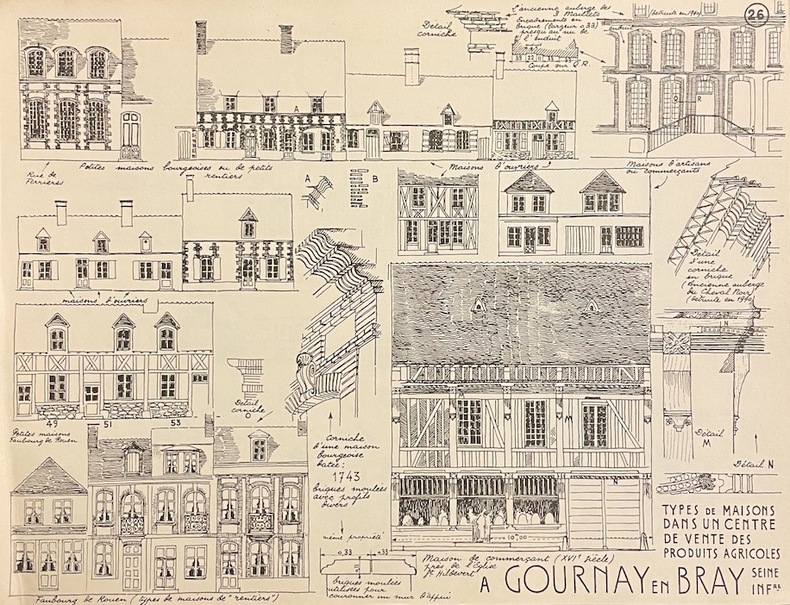 26
Détail
corniche
L'ancienne auberge des
3 Maillets
Encadrements en
brique (largeur 0.33)
presqu'au nu de
l'enduit
Coupe sur Q.R.
enduit
(détruite en 1940)
Q R
A
Rue de
Ferrières
Petites maisons bourgeoises ou de petits
rentiers
Maisons d'ouvriers
Maisons d'artisans
ou commerçants
A
B
maisons d'ouvriers
Détail
d'une
corniche
en brique
(Ancienne auberge
du Cheval Noir
détruite en 1940)
N
49 51 53
Petites maisons
Faubourg de Rouen
Détail
corniche
O
corniche
d'une maison
bourgeoise
datée:
1743
briques moulées
avec profils
divers
même propriété
0,33
0.33
briques moulées
utilisées pour
couronner un mur d'appui
M
N
10.00
Maison de commerçant (XVIe siècle)
près de l'Eglise
St Hildevert
Détail
M
Détail N
TYPES DE MAISONS
DANS UN CENTRE
DE VENTE DES
PRODUITS AGRICOLES
A GOURNAY EN BRAY SEINE
INFRE
Faubourg de Rouen (types de maisons de "rentiers")